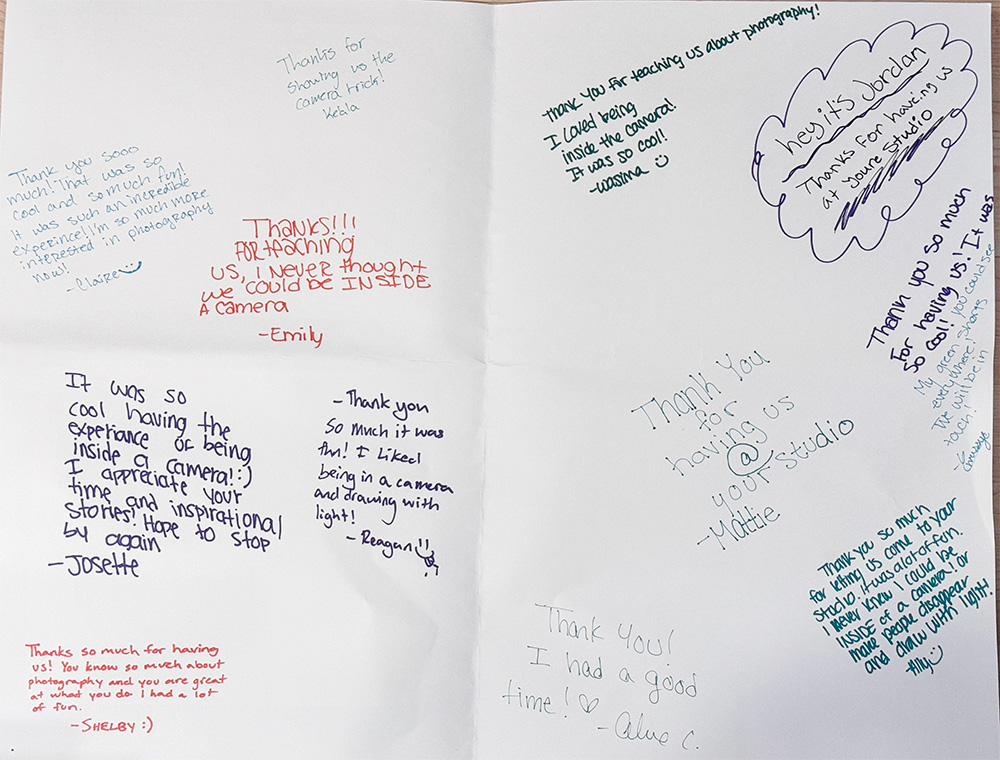 Thanks for
showing us the
camera trick!
Thank you sooo
much! That was so
cool and so much fun!
It was such an incredible
experince! I'm so much more
interested in photography
now!
-Claire
THANKS!!!
FOR teaching
US, I NEVER thought
we could be INSIDE
A camera
-Emily
It was so
cool having the
experiance of being
inside a camera!:)
I appreciate your
time and inspirational
stories! Hope to stop
by again
-Josette
-Thank you
So much it was
fun! I liked
being in a camera
and drawing with
light!
-Reagan
Thanks so much for having
us! You know so much about
photography and you are great
at what you do I had a lot
of fun.
-SHELBY :)
Thank you for teaching us about photography!
I loved being
inside the camera!
It was so cool!
-wasima
hey it's Jordan
Thanks for haveing us
at youre studio
Thank you so much
for having us! It was
so cool! you could see
My green shorts
everywhere!
We will be in
touch!
Thank You
for
having us
@
your studio
-Mattie
Thank you so much
for letting us come to your
Studio. it was a lot of fun.
I never knew I could be
INSIDE of a camera! or
make people disappear
and draw with light!
-Ally
Thank you!
I had a good
time! ♡
C.